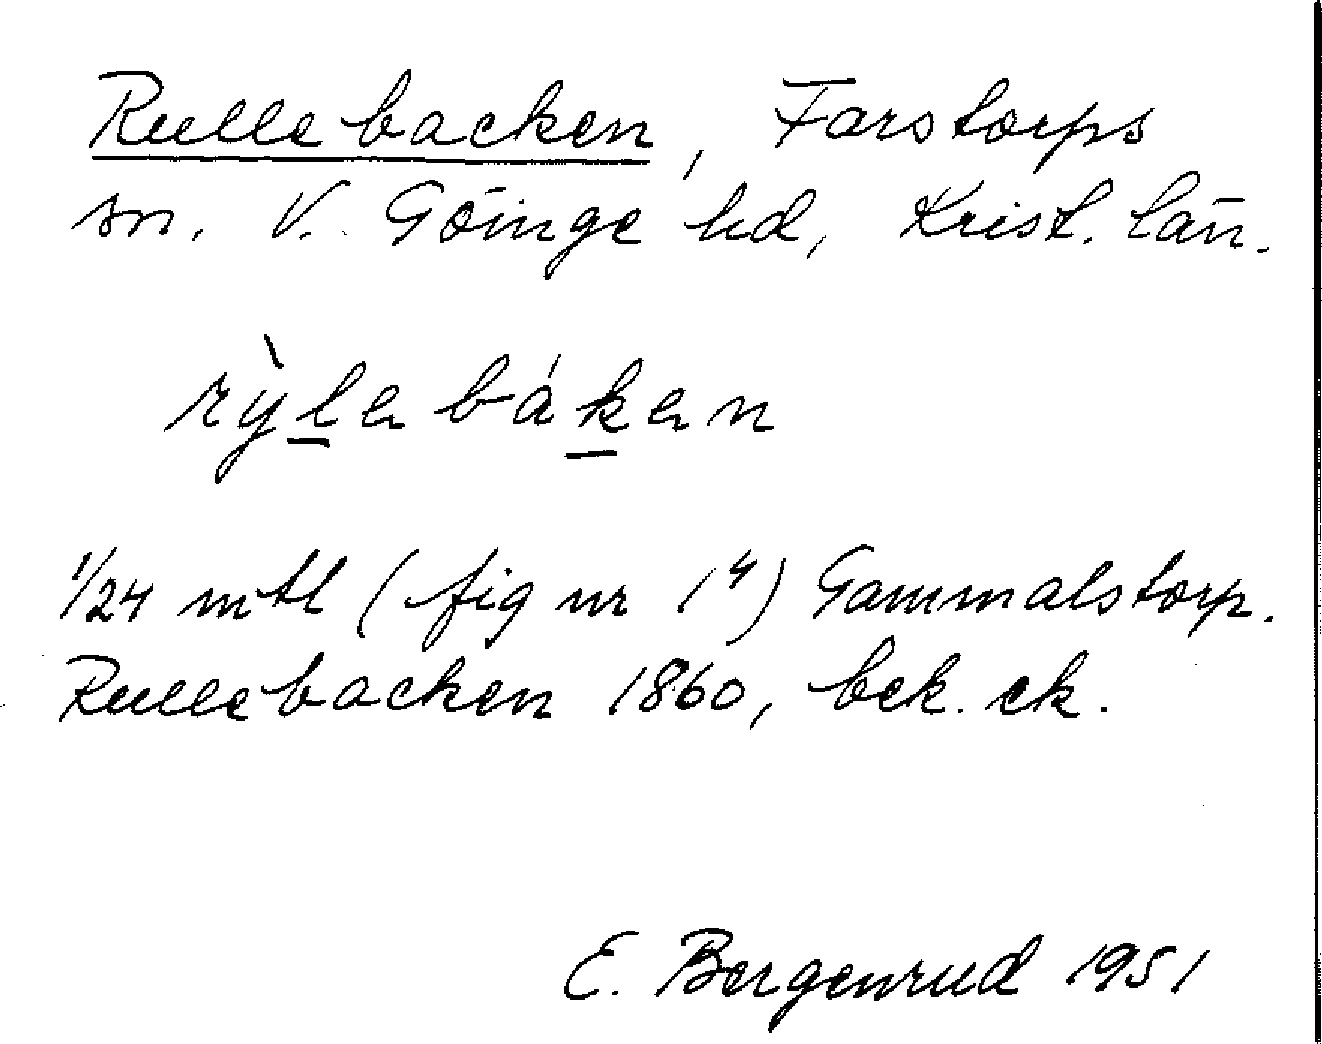 Rullebacken, Farstorps
sn. V. Göinge hd, Krist. län.
rỳl̲ə bák̲ən
1/24 mtl (fig nr 1⁴) Gammalstorp.
Rullebacken 1860, bek. ek.
E. Bergenrud 1951